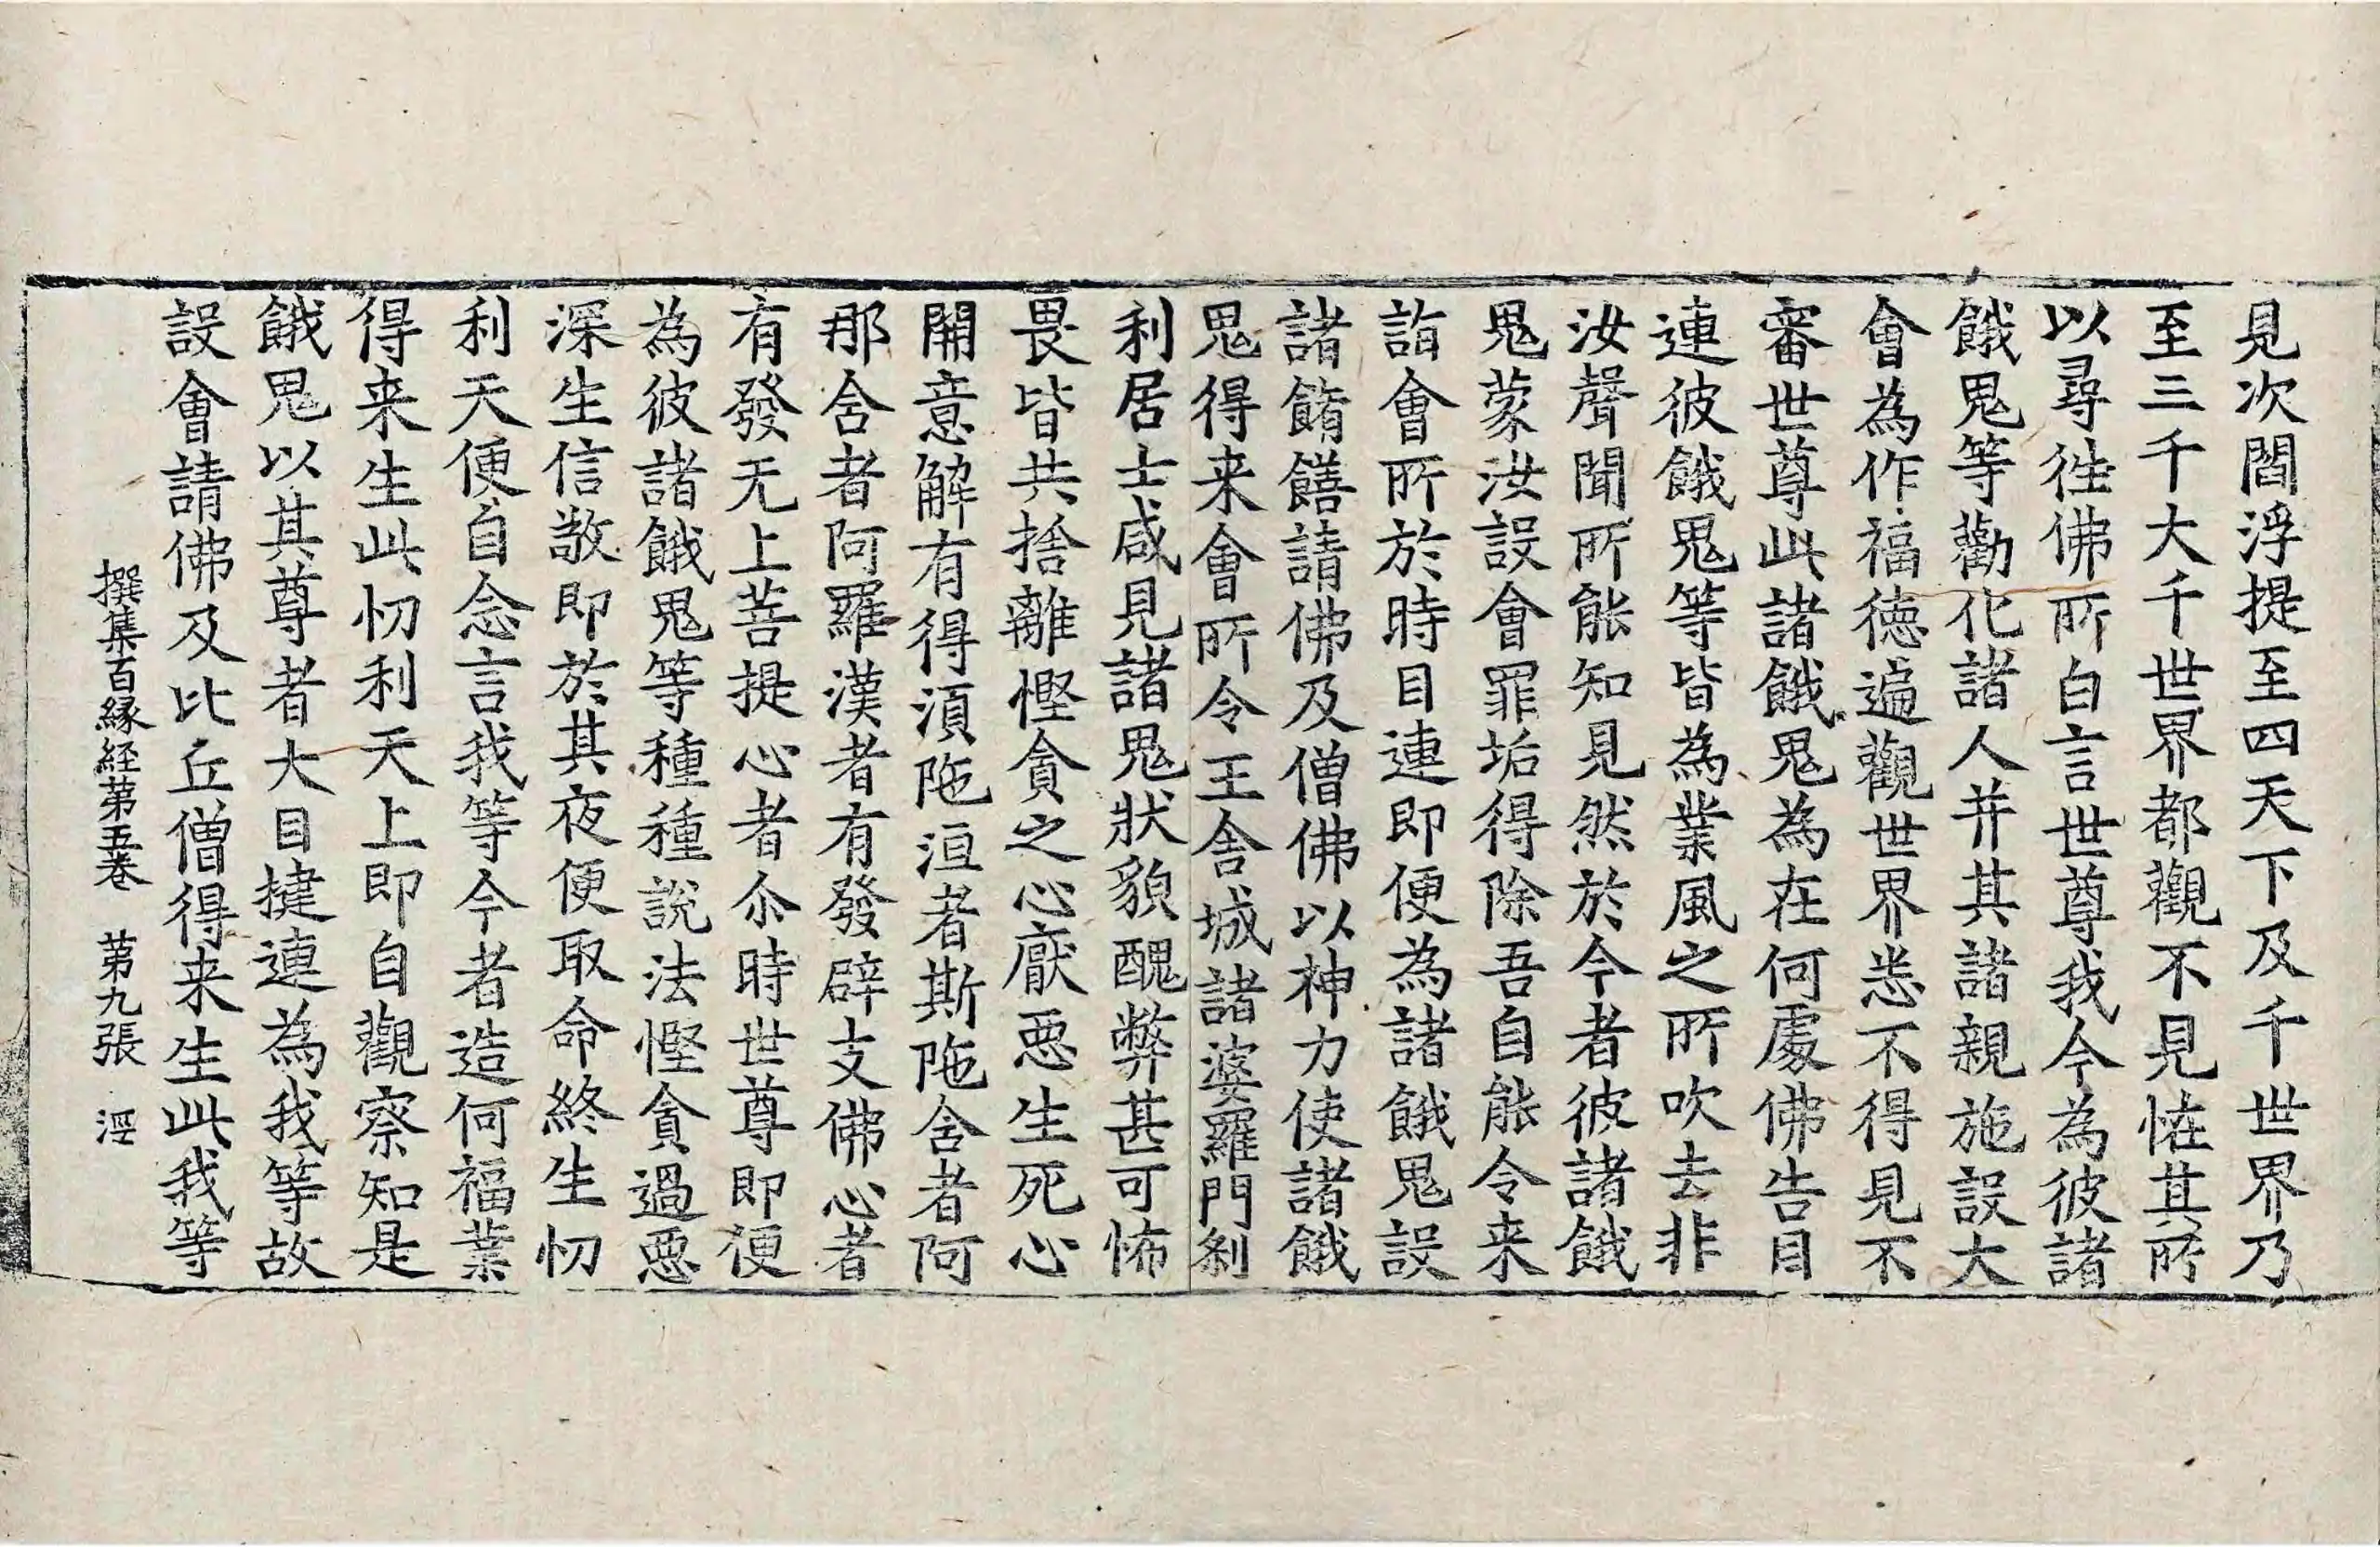 見次閻浮提至四天下及千世界乃
至三千大千世界都觀不見恠其所
以尋徃佛所白言世尊我今為彼諸
餓鬼等勸化諸人并其諸親施設大
會為作福徳遍觀世界悉不得見不
審世尊此諸餓鬼為在何處佛告目
連彼餓鬼等皆為業風之所吹去非
汝聲聞所能知見然於今者彼諸餓
鬼蒙汝設會罪垢得除吾自能令来
詣會所於時目連即便為諸餓鬼設
諸餚饍請佛及僧佛以神力使諸餓
鬼得来會所令王舎城諸婆羅門剎
利居士咸見諸鬼狀貌醜弊甚可怖
畏皆共捨離慳貪之心厭惡生死心
開意解有得湏陁洹者斯陁含者阿
那含者阿羅漢者有發辟支佛心者
有發无上菩提心者尒時世尊即便
為彼諸餓鬼等種種說法慳貪過惡
深生信敬即於其夜便取命終生忉
利天便自念言我等今者造何福業
得来生此忉利天上即自觀察知是
餓鬼以其尊者大目揵連為我等故
設會請佛及比丘僧得来生此我等
撰集百縁経第五巻　第九張　涇